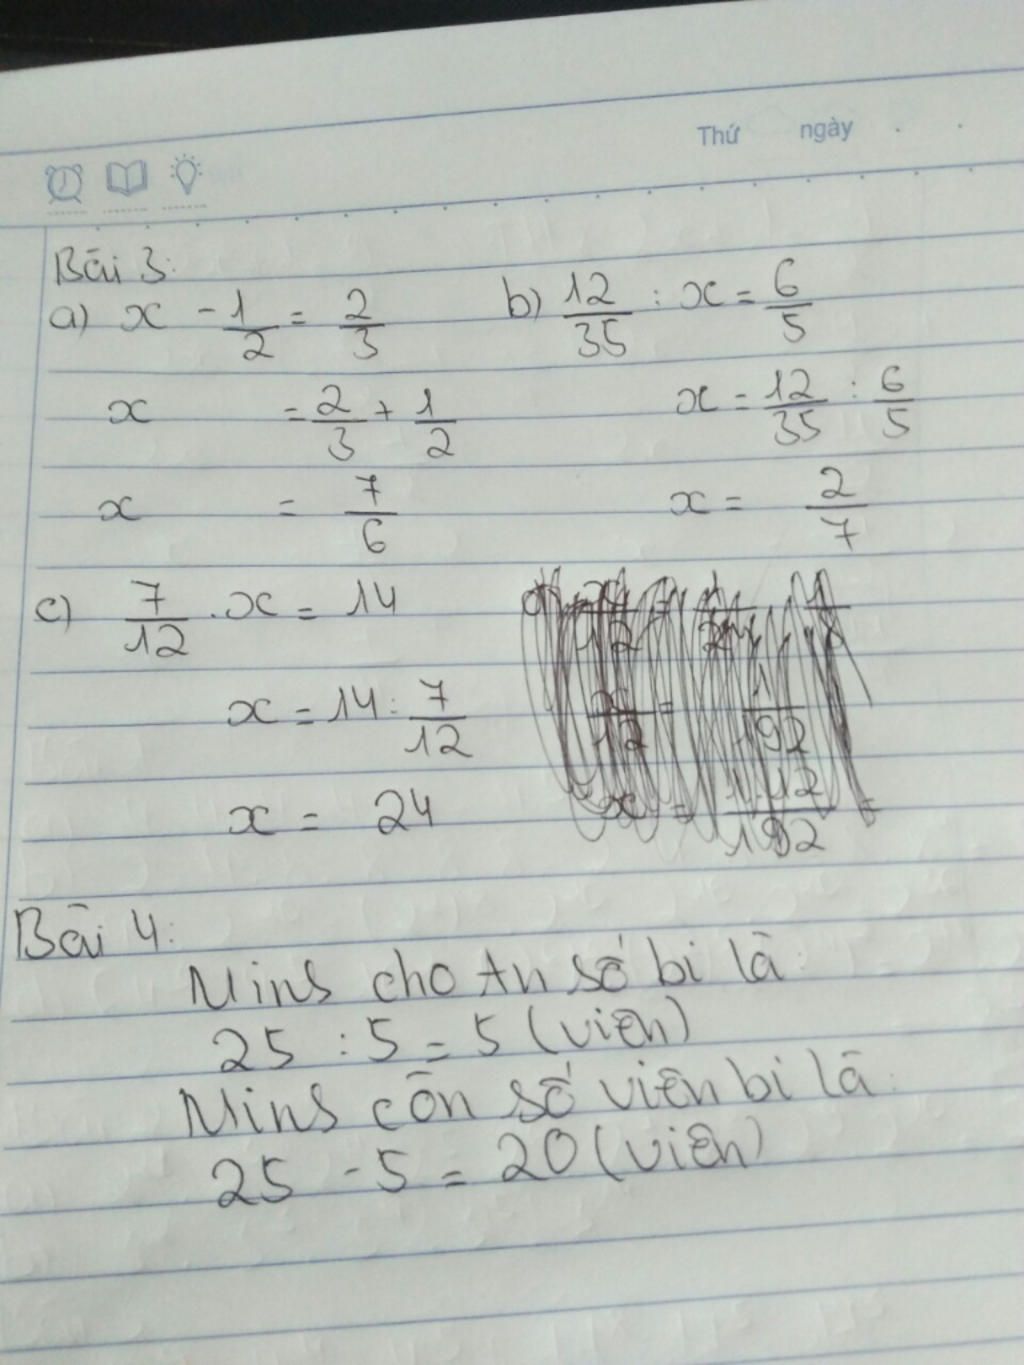 Thứ ngày
Bài 3:
a) x - 1/2 = 2/3
x = 2/3 + 1/2
x = 7/6
b) 12/35 : x = 6/5
x = 12/35 : 6/5
x = 2/7
c) 7/12 . x = 14
x = 14 : 7/12
x = 24
Bài 4:
Minh cho An số bi là:
25 : 5 = 5 (viên)
Minh còn số viên bi là:
25 - 5 = 20 (viên)